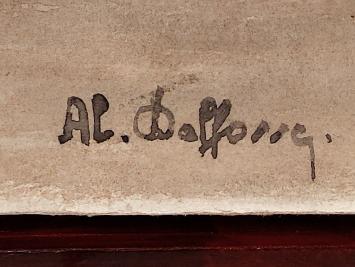 Al. Delfosse.